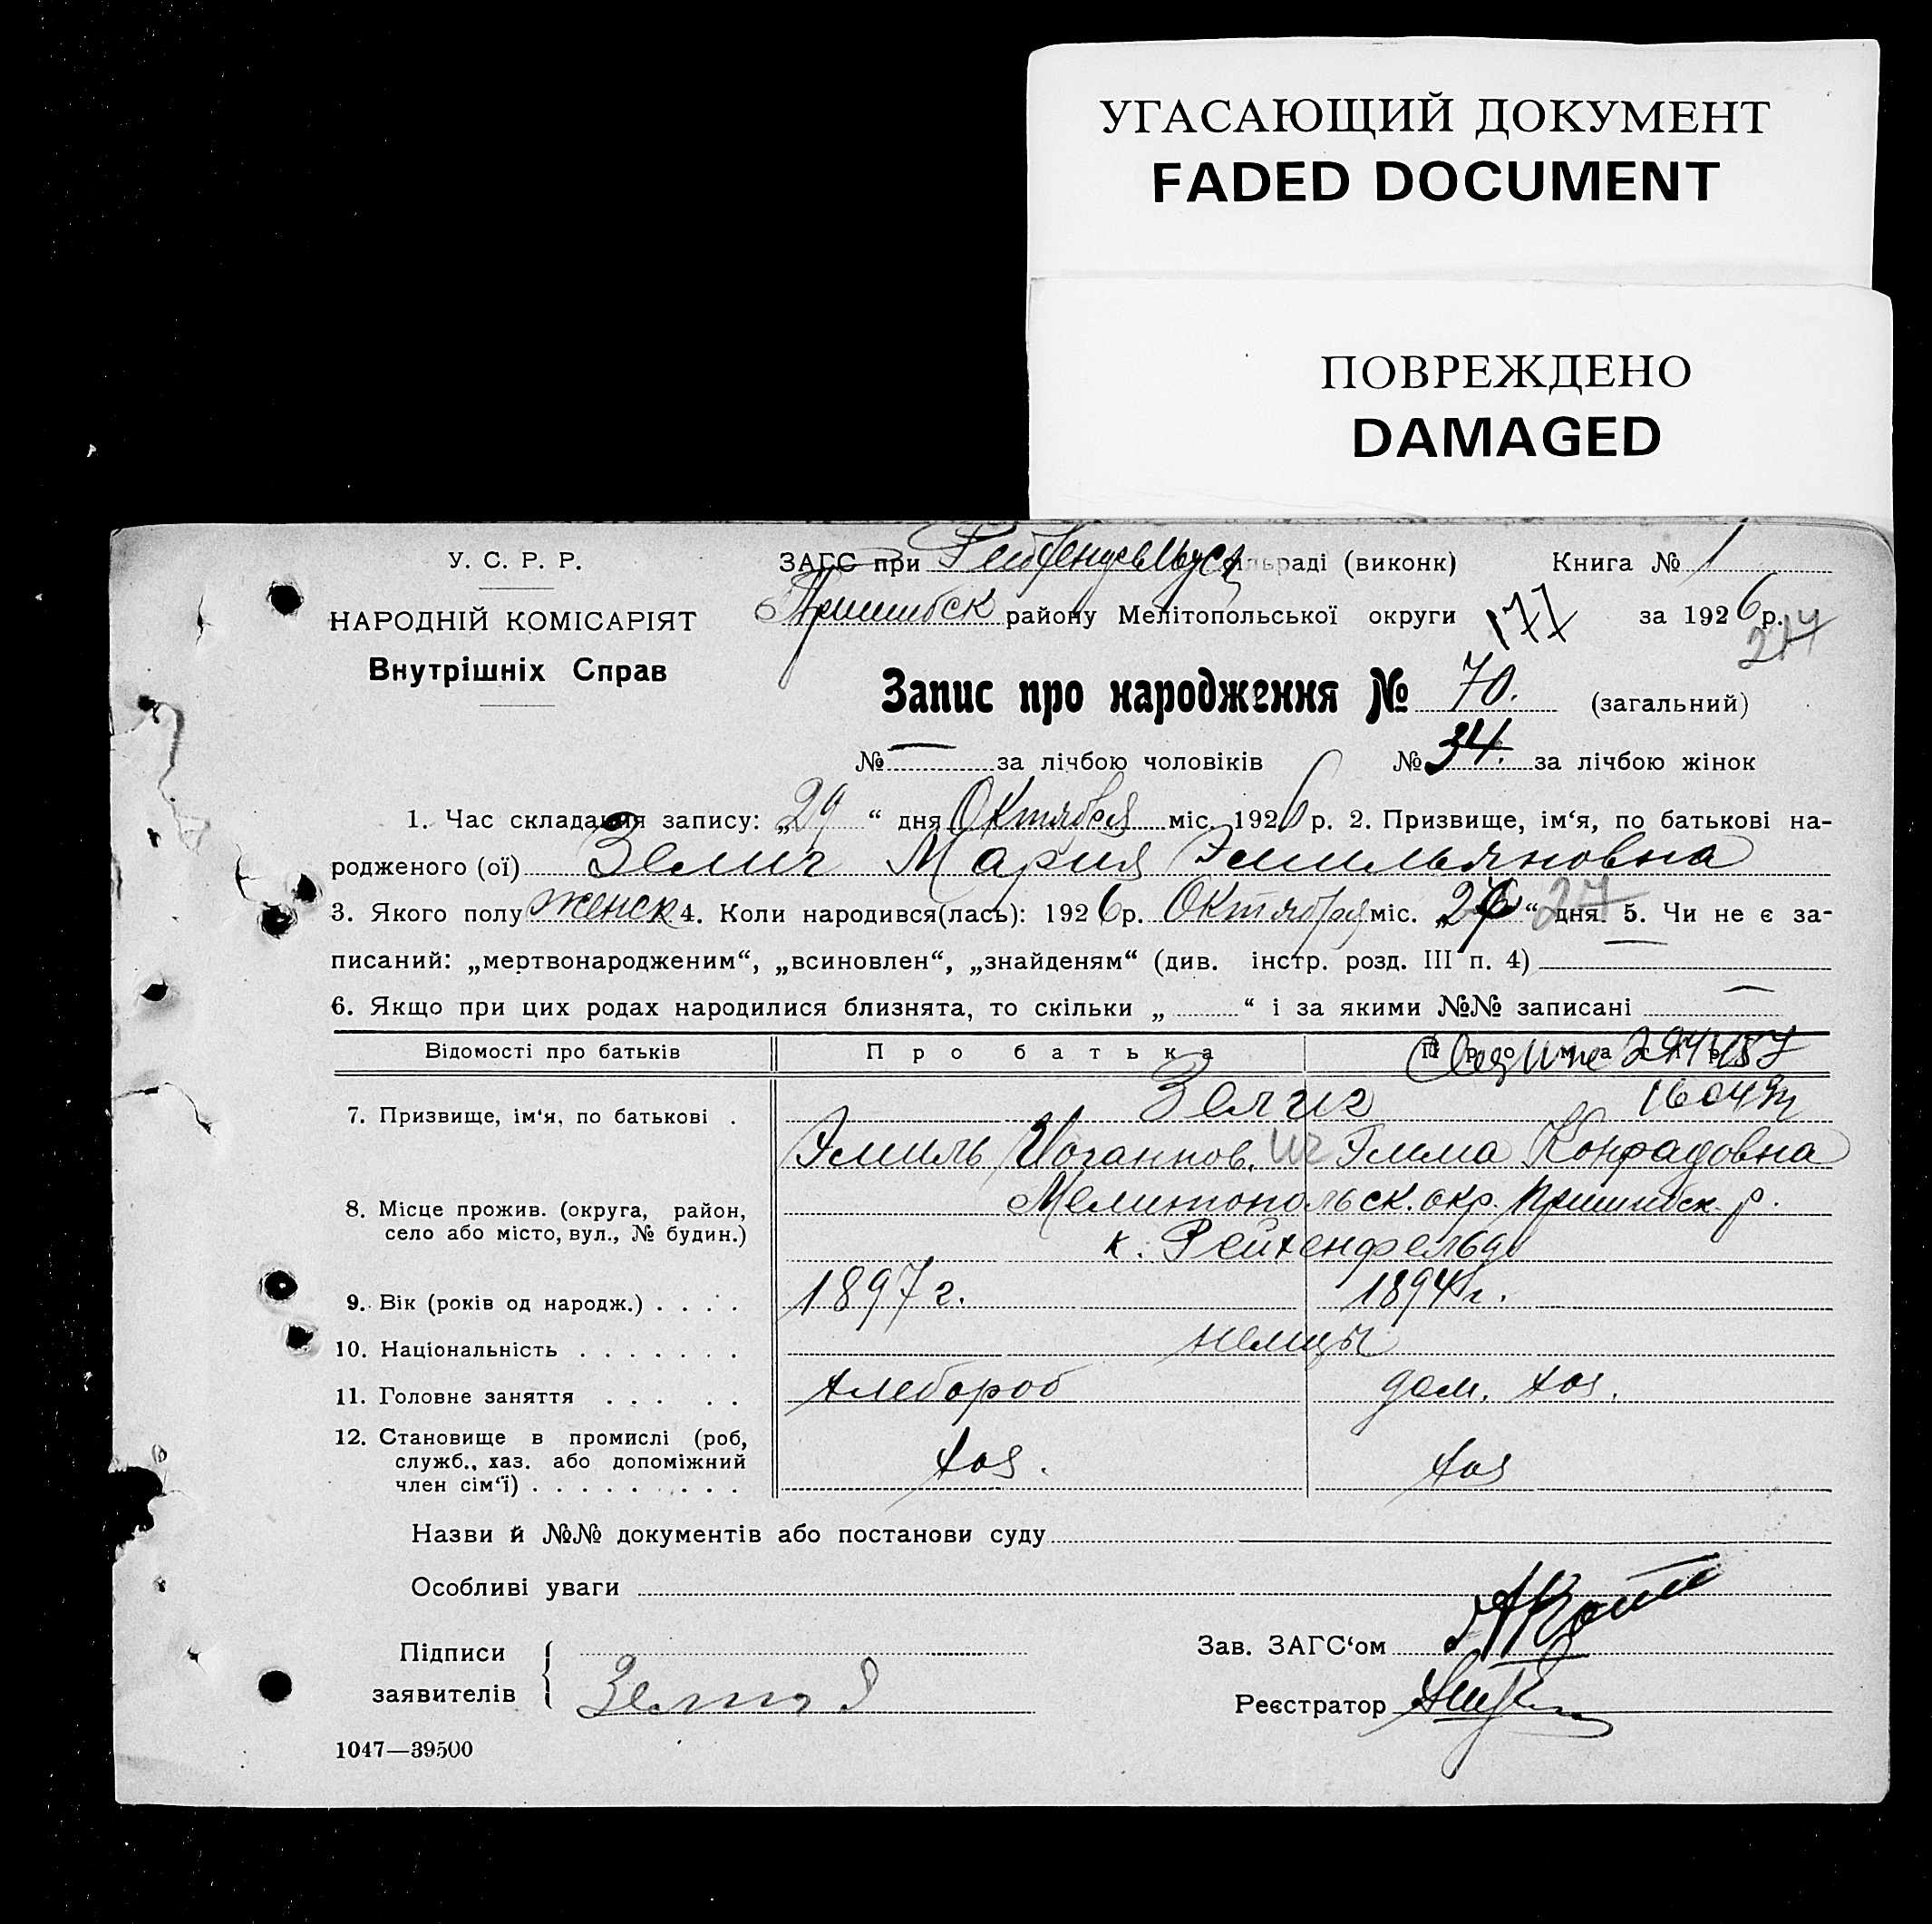 УГАСАЮЩИЙ ДОКУМЕНТ
FADED DOCUMENT
ПОВРЕЖДЕНО
DAMAGED
У. С. Р. Р.
НАРОДНІЙ КОМІСАРІЯТ
Внутрішніх Справ
ЗАГС при сільраді (виконк) Книга № 1
Пришибск району Мелітопольської округи 177 за 1926 р.
217
Запис про народження № 70. (загальний)
№ — за лічбою чоловіків № 34. за лічбою жінок
1. Час складання запису: „29“ дня Октября міс. 1926 р. 2. Призвище, ім‘я, по батькові на-
родженого (ої) Зелиг Мария Эмильяновна
3. Якого полу женск 4. Коли народився(лась): 1926 р. Октября міс. „26“ дня. 27 5. Чи не є за-
писаний: „мертвонародженим“, „всиновлен“, „знайденям“ (див. інстр. розд. III п. 4) —
6. Якщо при цих родах народилися близнята, то скільки „ “ і за якими №№ записані —
Відомості про батьків
Про батька
Про матір
294487
7. Призвище, ім‘я, по батькові .
Зелиг
Эмиль Иоганнов. ич Эмма Конрадовна
8. Місце прожив. (округа, район,
село або місто, вул., № будин.)
Мелитопольск. окр. Пришибск. р.
к. Рейхенфельд
9. Вік (років од народж.) . . . . 1897 г. 1894 г.
10. Національність . . . . . . . немцы
11. Головне заняття . . . . . хлебороб дом. хоз.
12. Становище в промислі (роб,
служб., хаз. або допоміжний
член сім‘ї) . . . . . . . . . хоз. хоз
Назви й №№ документів або постанови суду
Особливі уваги
Підписи
заявителів
Зав. ЗАГС‘ом
Реєстратор
1047—39500